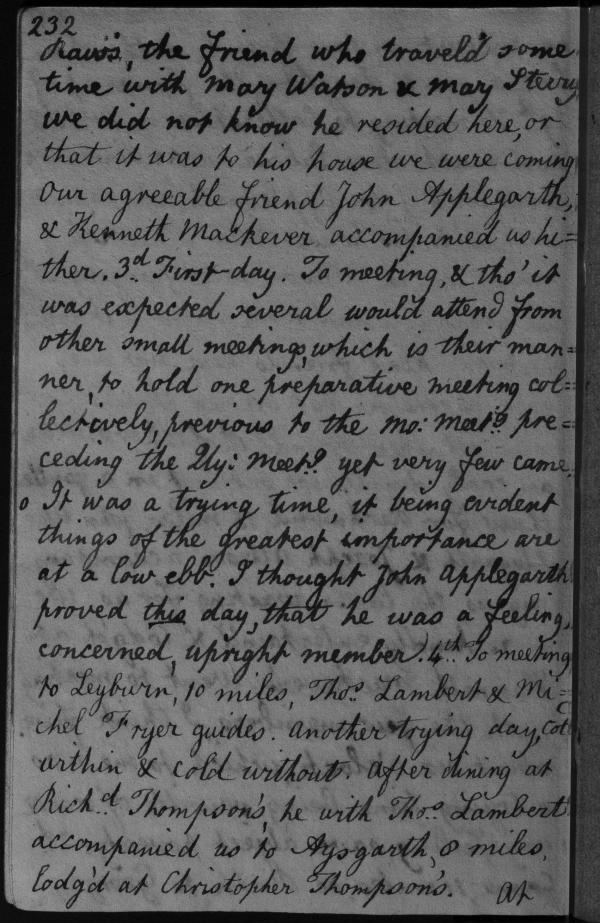 232
Raws's, the friend who travel'd some
time with Mary Watson & Mary Steery
we did not know he resided here, or
that it was to his house we were coming
Our agreeable friend John Applegarth,
& Kenneth Mackever accompanied us hi=
ther. 3d. First-day. To meeting, & tho' it
was expected several would attend from
other small meetings, which is their man=
ner, to hold one preparative meeting col=
lectively, previous to the Mo: Meetg. pre=
ceding the Qly: Meetg. yet very few came.
o It was a trying time, it being evident
things of the greatest importance are
at a low ebb. I thought John Applegarth
proved this day, that he was a feeling,
concerned, upright member. 4th. To meeting
to Leyburn, 10 miles, Thos. Lambert & Mi=
chel Fryer guides. Another trying day,
within & cold without. After dining at
Richd. Thompson's, he with Thos. Lambert
accompanied us to Aysgarth, 8 miles,
lodg'd at Christopher Thompson's.
At